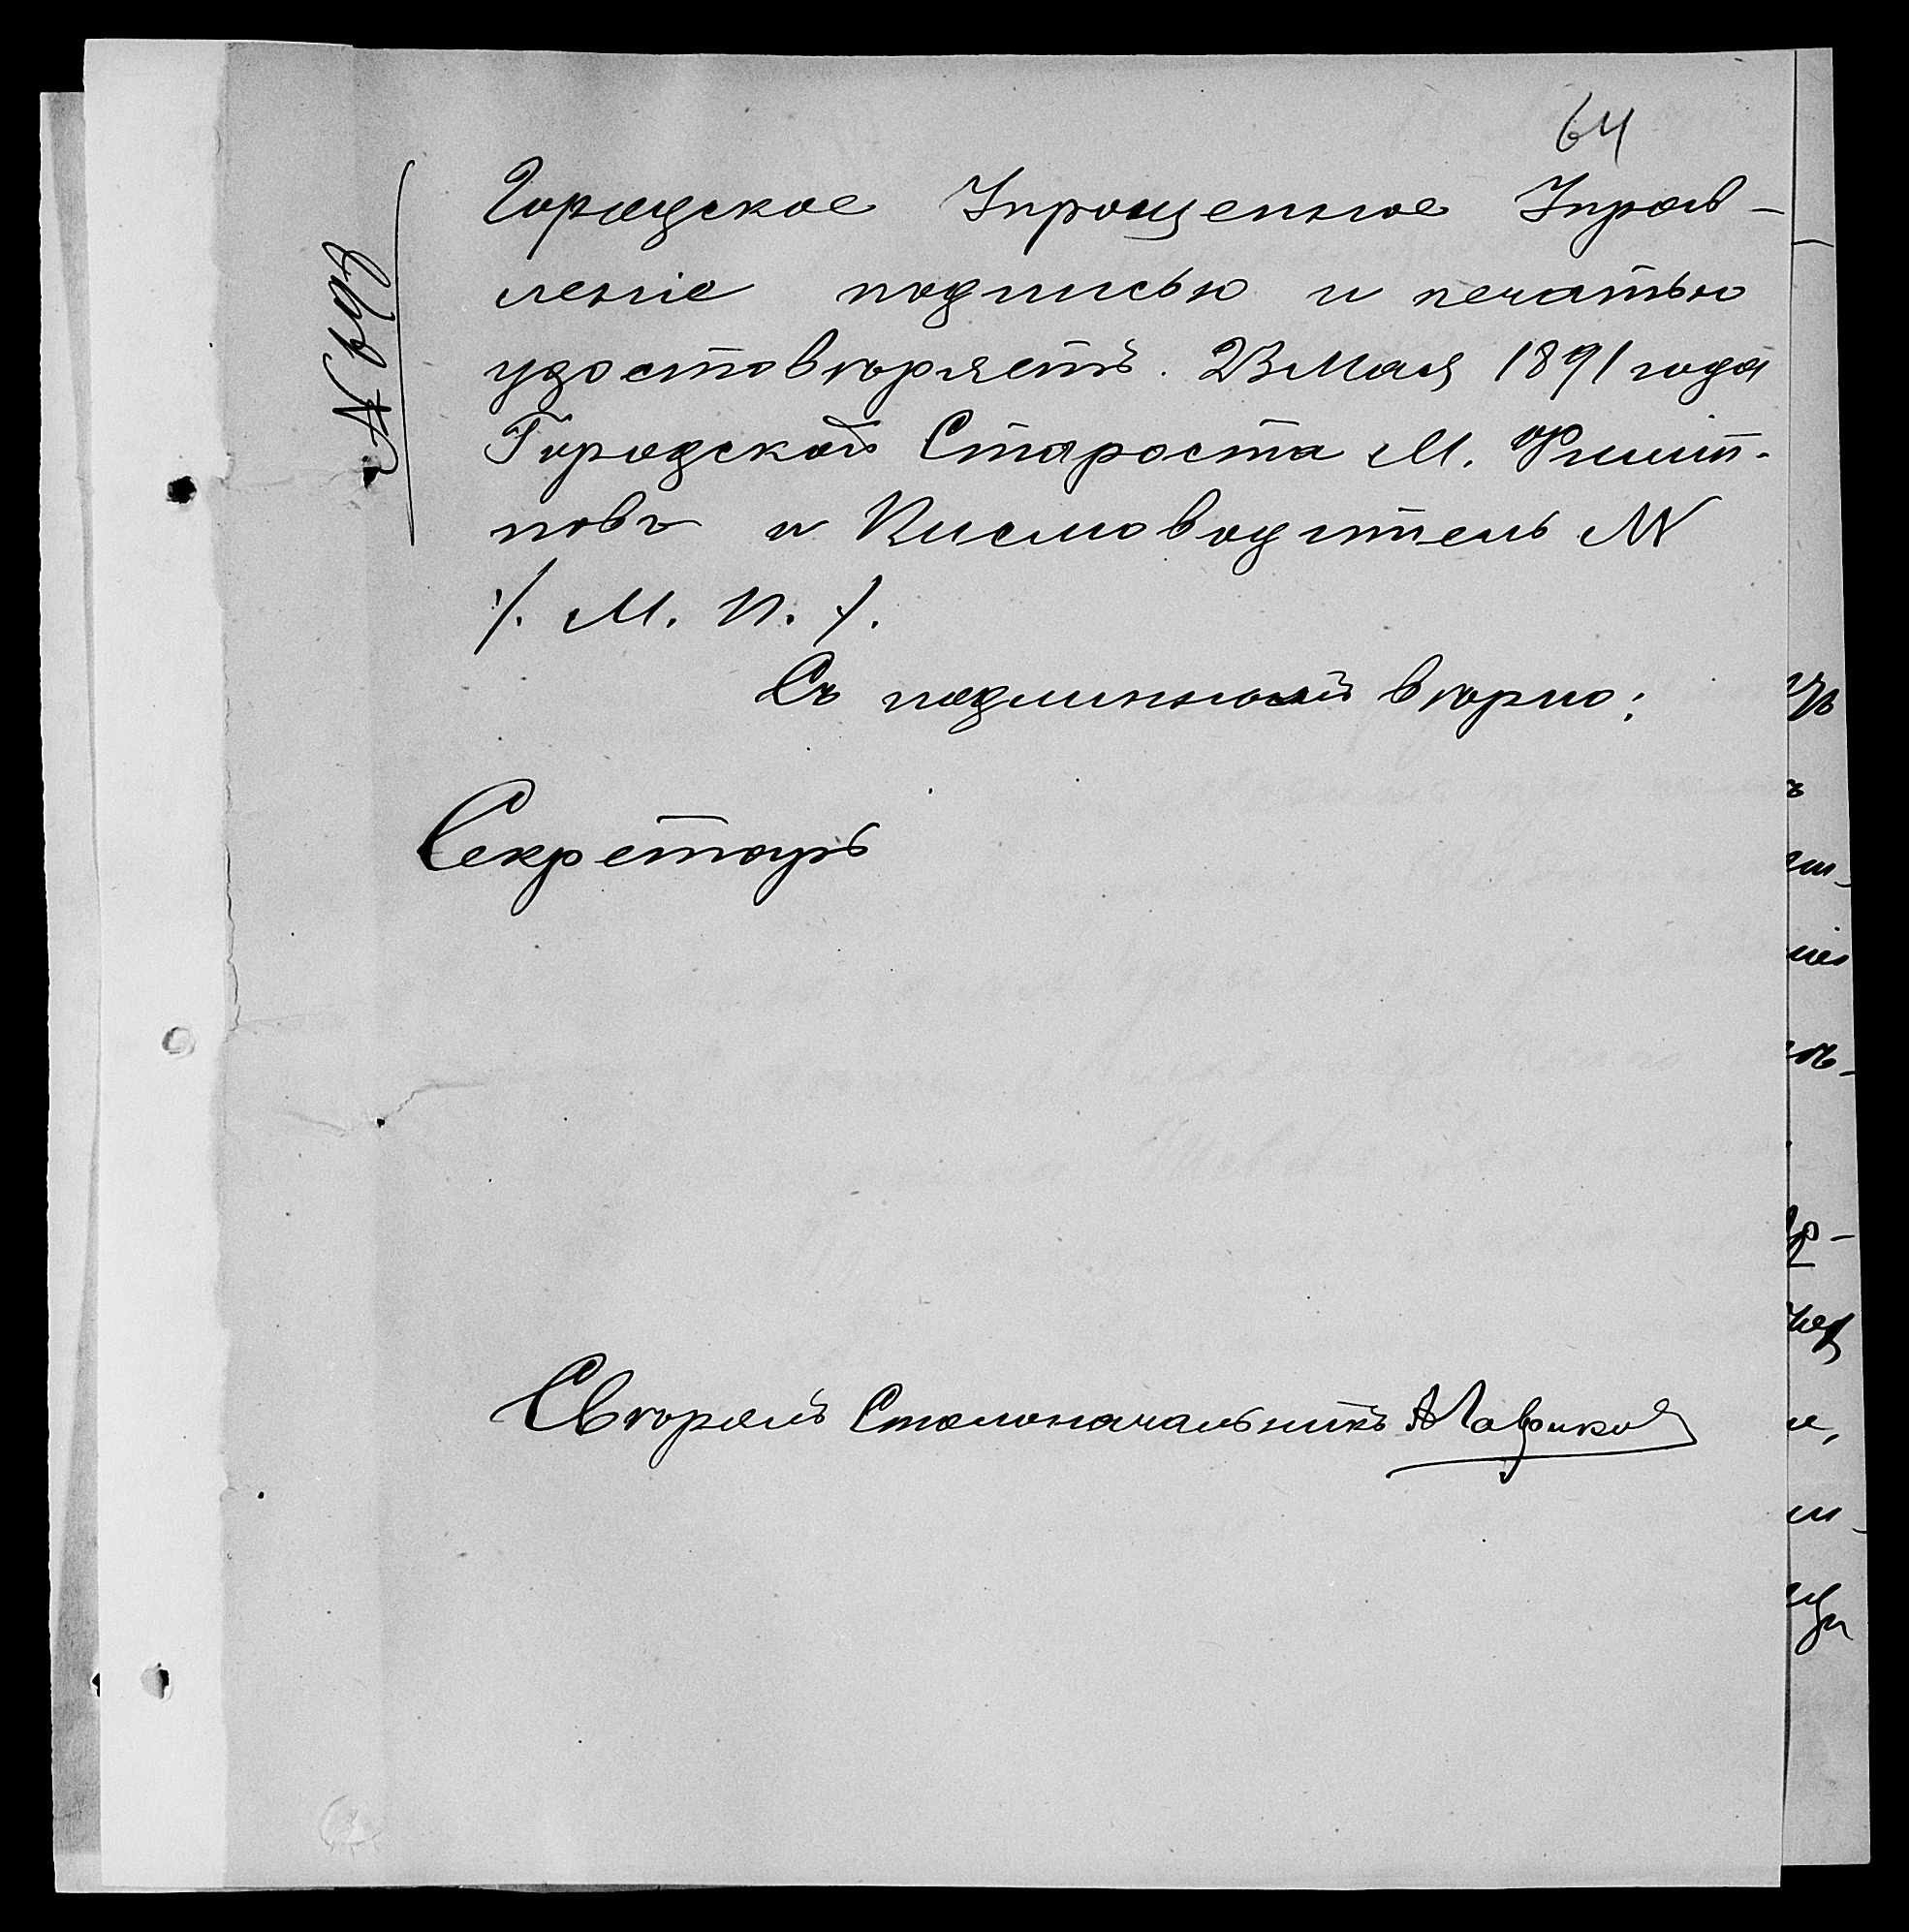 64
№ 693
Городское Упрощенное Управ-
леніе подписью и печатью
удостовѣряетъ. 23 Мая 1891 года
Городской Староста М. Филип-
повъ и Письмоводитель N
/. М. П. /.
Съ подлиннымъ вѣрно:
Секретарь
Свѣрялъ Столоначальникъ